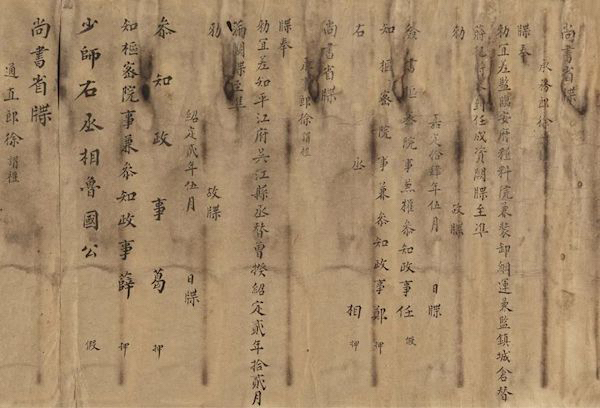 尚書省牒
承務郎徐謂禮
牒奉
勑宜差監臨安府糧料院兼裝卸綱運兼監鎮城倉替
到任成資闕牒至準
勑
故牒
嘉定拾肆年伍月 日牒
簽書樞密院事兼權參知政事任 假
知樞密院事兼參知政事鄭 押
右丞相 押
尚書省牒
承 郎徐謂禮
牒奉
勑宜差知平江府吳江縣丞替曹揆紹定貳年拾貳月
滿闕牒至準
勑
故牒
紹定貳年伍月 日牒
參知政事葛 押
知樞密院事兼參知政事薛 押
少師右丞相魯國公 假
尚書省牒
通直郎徐謂禮